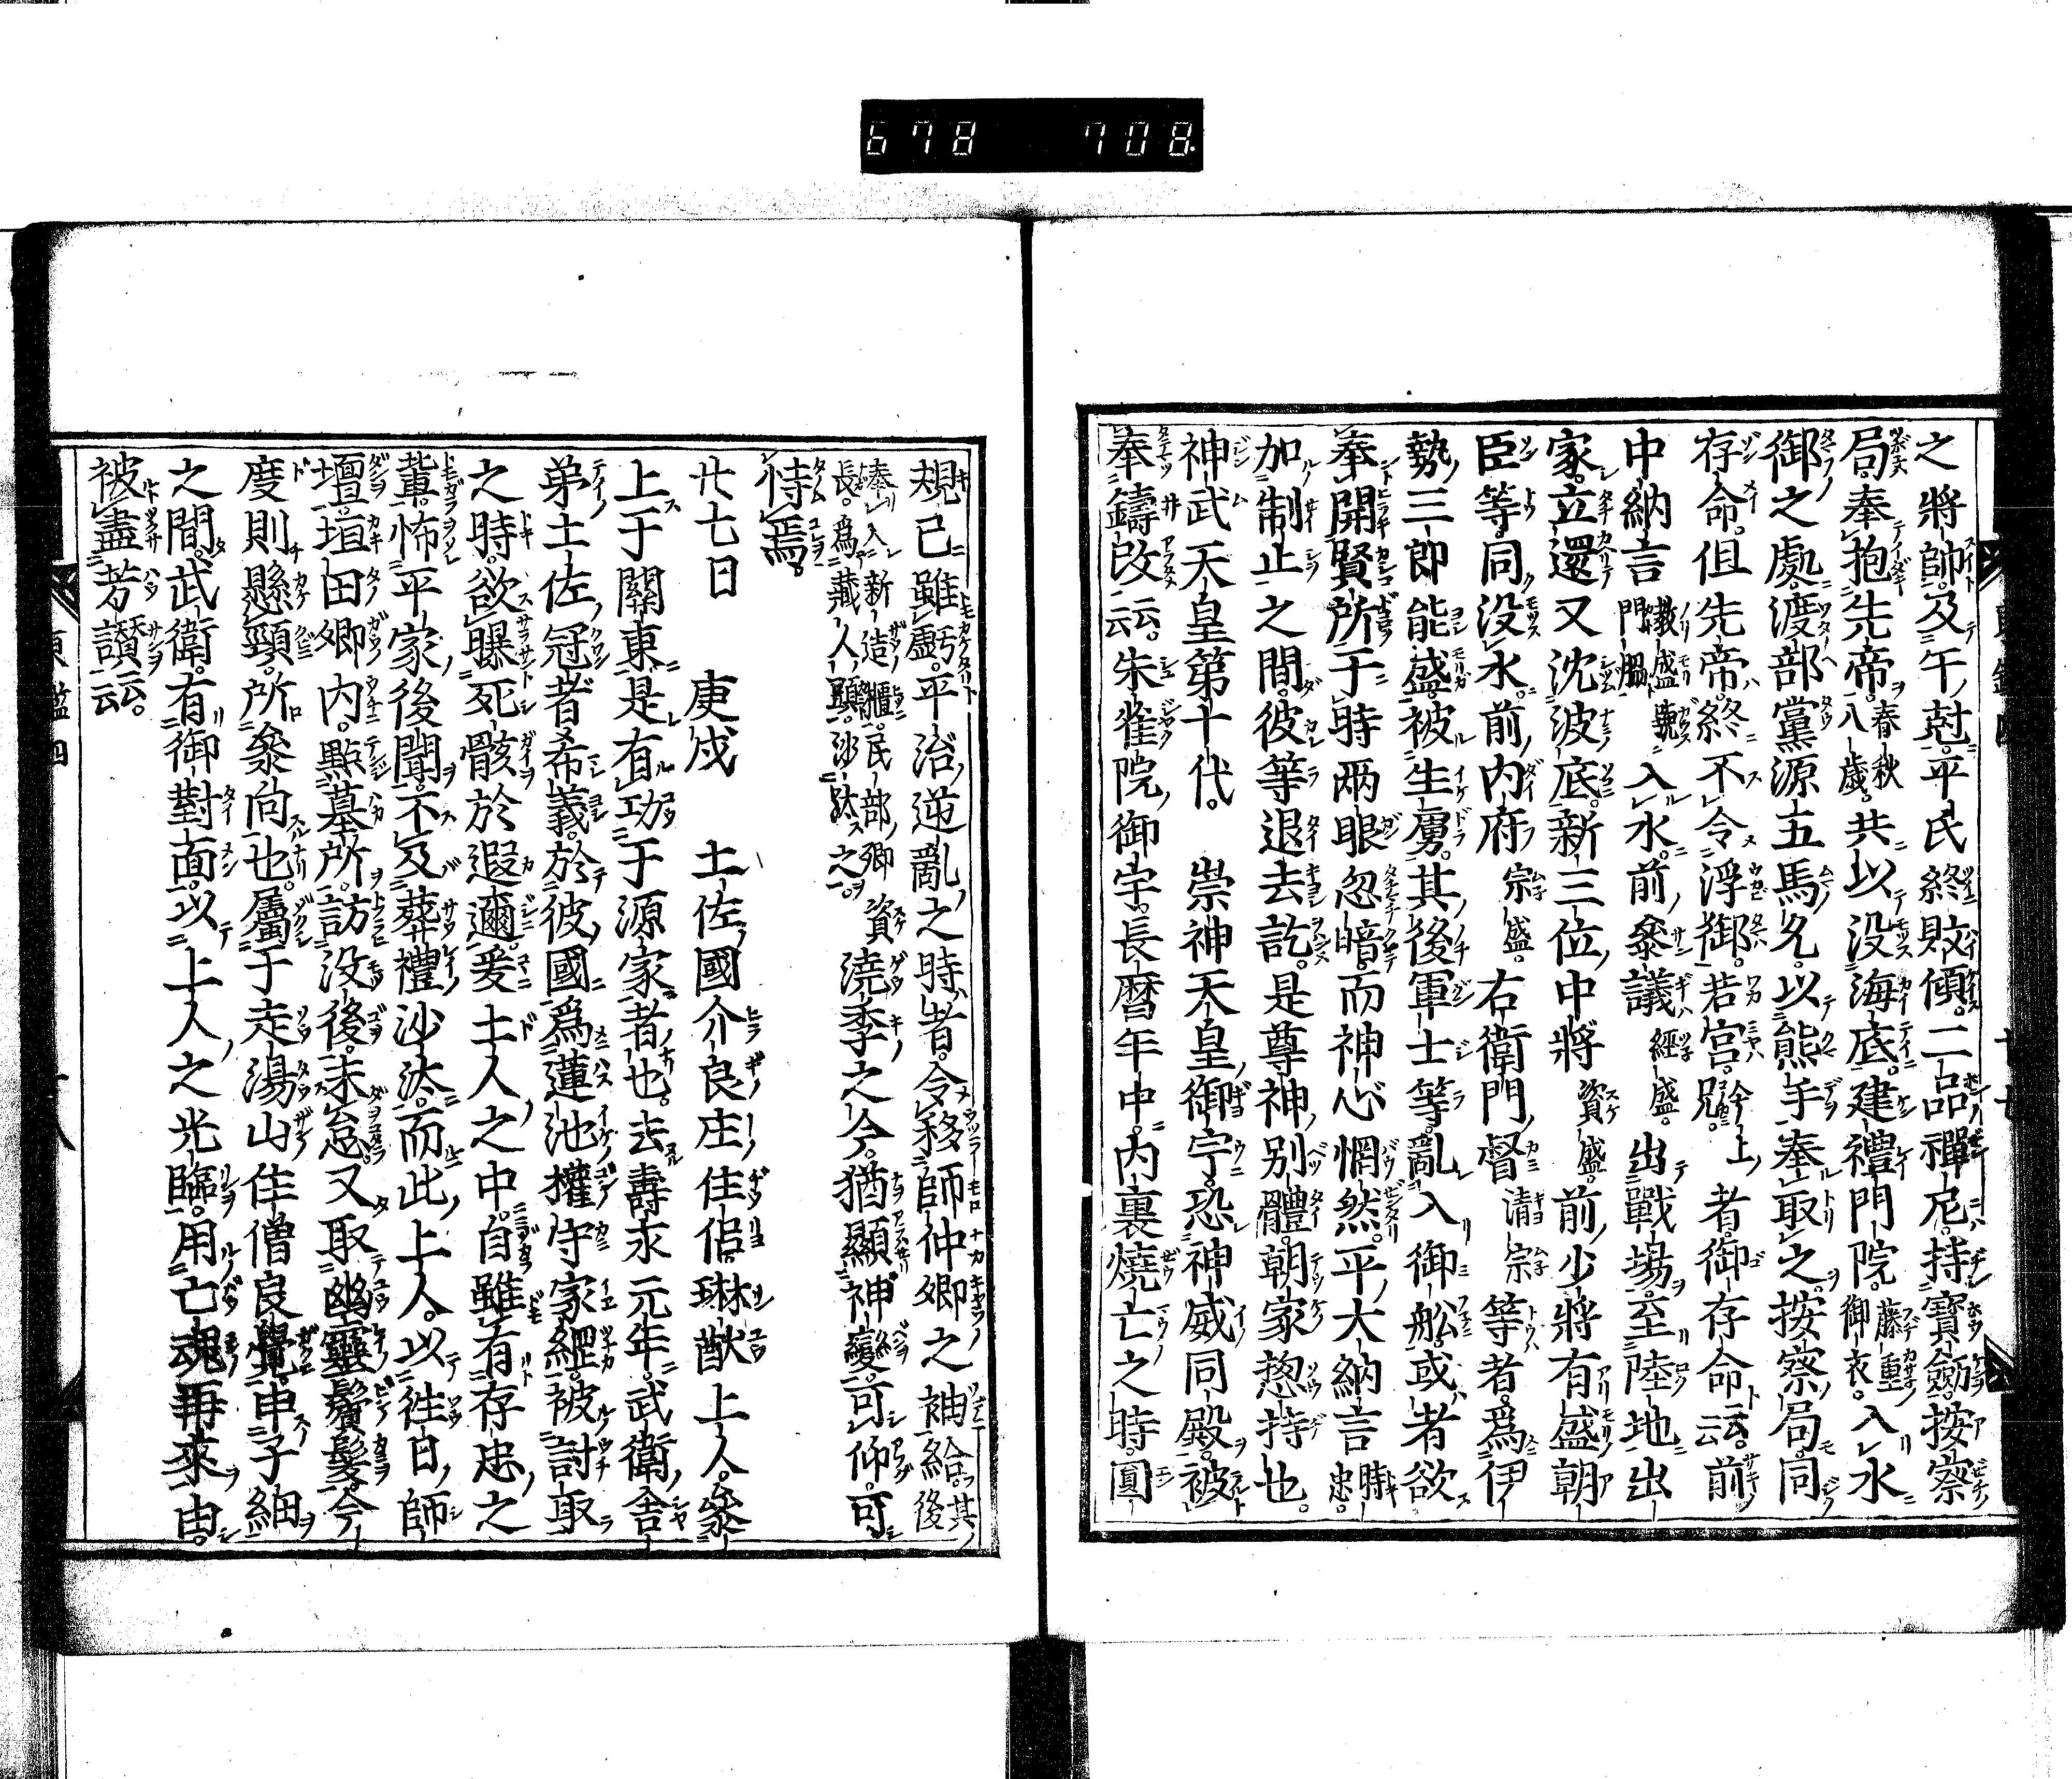 678 708
之將帥。及午尅。平氏終敗傾。二品禪尼。持寶劔。按察
局。奉抱先帝。春秋八歳。共以没海底。建禮門院。藤重御衣。入水
御之處。渡部黨源五馬允。以熊手奉取之。按察局。同
存命。但先帝。終不令浮御。若宮。今上兄。者。御存命云云。前
中納言教盛號門脇入水。前參議經盛。出戰場。至陸地出
家。立還又沈波底。新三位中將資盛。前少將有盛朝
臣等。同没水。前内府宗盛。右衛門督清宗等者。爲伊
勢三郎能盛。被生虜。其後軍士等。亂入御船。或者欲
奉開賢所。于時兩眼忽暗。而神心惘然。平大納言時忠。
加制止之間。彼等退去訖。是尊神別體。朝家惣持也。
神武天皇第十代。崇神天皇御宇。恐神威同殿。被
奉鑄改云云。朱雀院御宇。長暦年中。内裏燒亡之時。圓
規已雖虧。平治逆亂之時者。令移師仲卿之袖給。其後
奉入新造櫃。民部卿資長。爲藏人頭。沙汰之。澆季之今。猶顯神變。可仰。可
恃焉。
廿七日 庚戌 土佐國介良庄住侶琳猷上人。參
上于關東。是有功于源家者也。去壽永元年。武衛舎
弟土佐冠者希義。於彼國爲蓮池權守家經。被討取
之時。欲曝死骸於遐邇。爰土人之中。自雖有存忠之
輩。怖平家後聞。不及葬禮沙汰。而此上人。以往日師
壇。垣田郷内。點墓所。訪没後。未怠。又取幽靈鬢髮。今
度則懸頸。所參向也。屬于走湯山住僧良覺。申子細
之間。武衛。有御對面。以上人之光臨。用亡魂再來由。
被盡芳讃云云。
東鑑四
十八